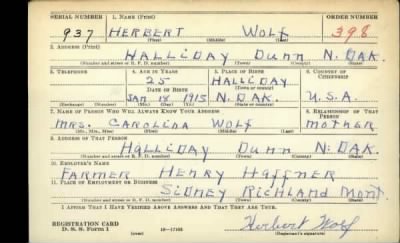 SERIAL NUMBER 1. NAME (Print) ORDER NUMBER
937 HERBERT WOLF 398
(First) (Middle) (Last)
2. ADDRESS (Print)
HALLIDAY DUNN N. DAK.
(Number and street or R. F. D. number) (Town) (County) (State)
3. TELEPHONE 4. AGE IN YEARS 5. PLACE OF BIRTH 6. COUNTRY OF CITIZENSHIP
25 HALLIDAY
DATE OF BIRTH (Town or county)
JAN 14 1915 N. DAK. U.S.A.
(Exchange) (Number) (Mo.) (Day) (Yr.) (State or country)
7. NAME OF PERSON WHO WILL ALWAYS KNOW YOUR ADDRESS 8. RELATIONSHIP OF THAT PERSON
MRS. CAROLINA WOLF MOTHER
(Mr., Mrs., Miss) (First) (Middle) (Last)
9. ADDRESS OF THAT PERSON
HALLIDAY DUNN N. DAK.
(Number and street or R. F. D. number) (Town) (County) (State)
10. EMPLOYER'S NAME
FARMER HENRY HAFFNER
11. PLACE OF EMPLOYMENT OR BUSINESS
SIDNEY RICHLAND MONT.
(Number and street or R. F. D. number) (Town) (County) (State)
I AFFIRM THAT I HAVE VERIFIED ABOVE ANSWERS AND THAT THEY ARE TRUE.
REGISTRATION CARD
D. S. S. Form 1 (over) 16-17105 Herbert Wolf
(Registrant's signature)